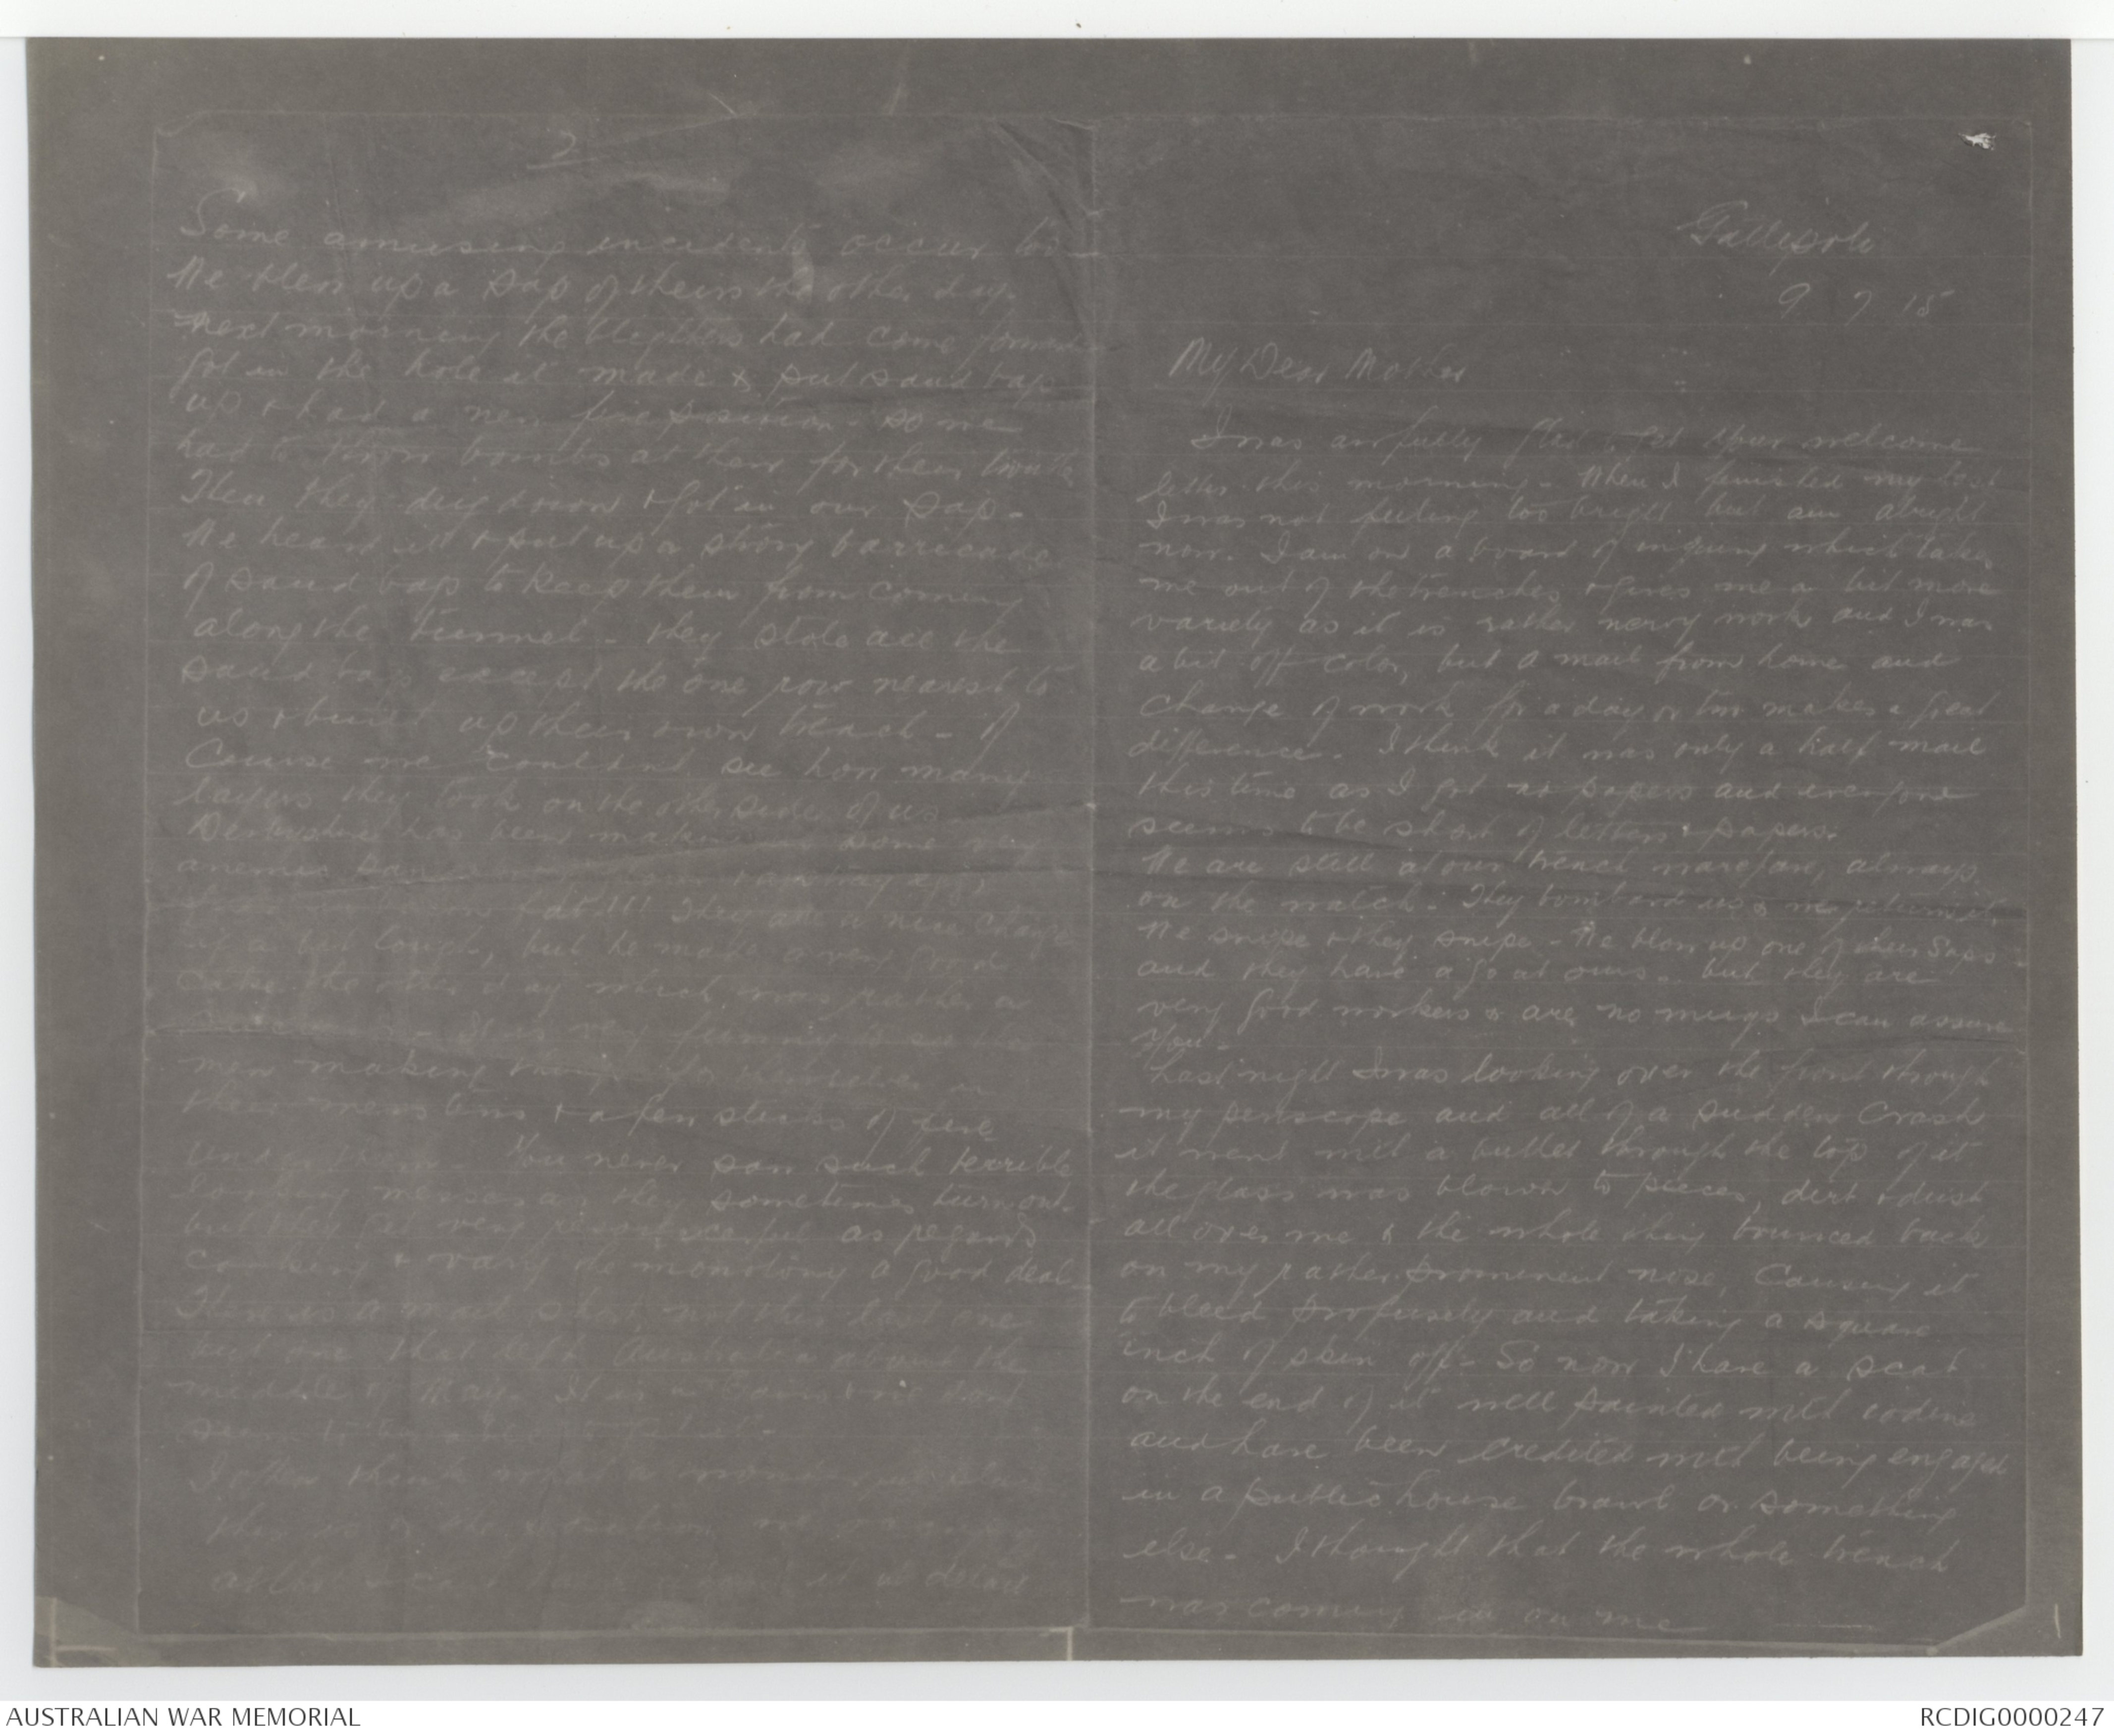 Gallipoli
9 7 15
My Dear Mother
I was awfully glad to get your welcome
letter this morning. When I finished my last
I was not feeling too bright but am alright
now. I am on a board of inquiry which takes
me out of the trenches & gives me a bit more
variety as it is rather nervy work and I was
a bit off color, but a mail from home and
change of work for a day or two makes a great
difference. I think it was only a half mail
this time as I got no papers and everyone
seems to be short of letters & papers.
We are still at our trench warefare, always
on the watch. They bombard us & we return it
We snipe & they snipe - We blow up one of their saps
and they have a go at ours. but they are
very good workers & are no mugs I can assure
you -
Last night I was looking over the front through
my periscope and all of a sudden crash
it went with a bullet through the top of it
the glass was blown to pieces, dirt & dust
all over me & the whole thing bounced back
on my rather prominent nose, causing it
to bleed profusely and taking a square
inch of skin off - So now I have a scab
on the end of it well painted with iodine
and have been credited with being engaged
in a public house brawl or something
else - I thought that the whole trench
was coming in on me
2
Some amusing incidents occur too
We blew up a sap of theirs the other day.
next morning the blighters had come forward
got in the hole it made & put sand bags
up & had a new fire position - so we
had to throw bombs at them for their trouble
Then they dug down & got in our sap -
We heard it & put up a strong barricade
of sand bags to keep them from coming
along the tunnel - they stole all the
sand bags except the one row nearest to
us & built up their own trench - Of
Course we couldnt see how many
layers they took on the other side of us
Derbyshire has been making some very
They are a nice change
if a bit tough, but he made a very good
cake the other day which was rather a
It is very funny to see the
men making things for themselves in
their mess tins & a few sticks of fire
under them - You never saw such terrible
looking messes as they sometimes turn out.
but they get very resourceful as regards
cooking & vary the monotony a good deal
There is a mail short, not this last one
but one that left Australia about the
middle of May. It is a
seem to
I often think what a
the position we occupy